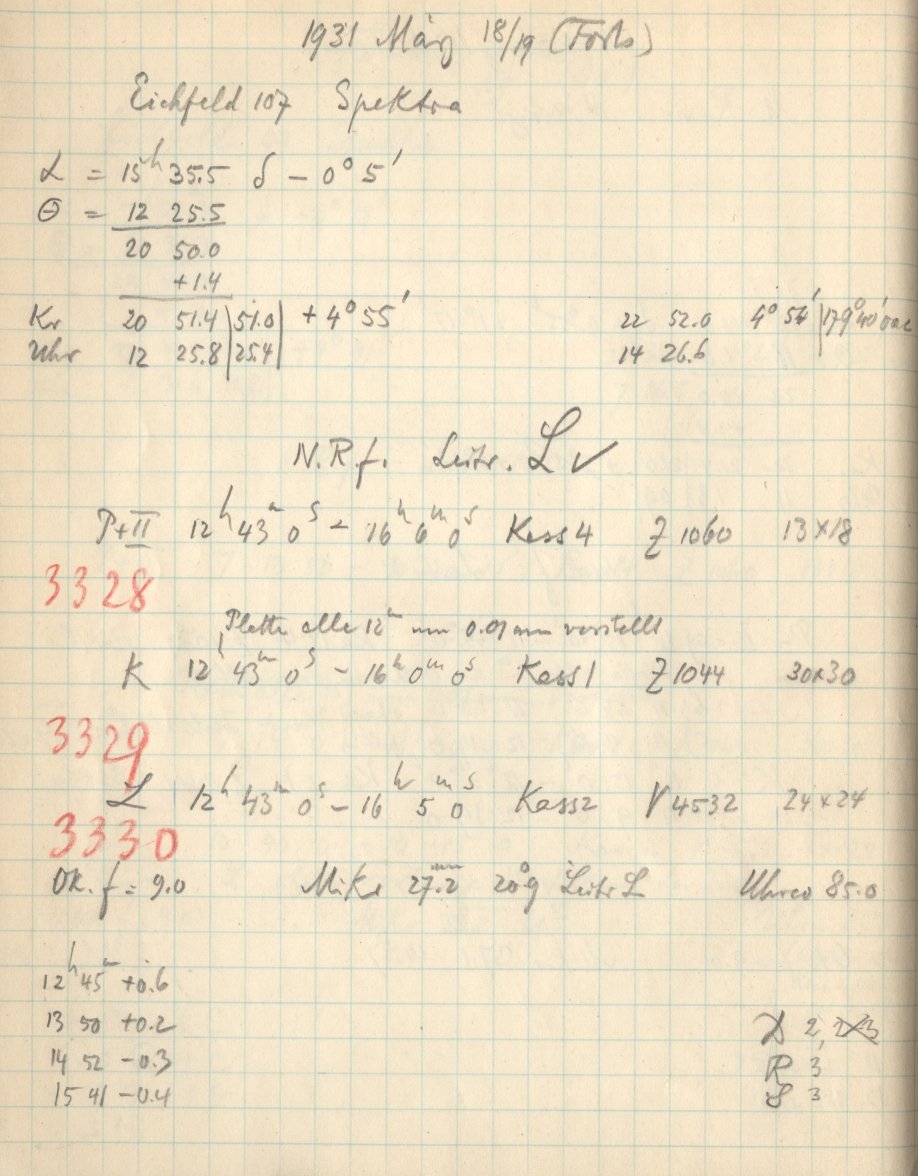 1931 März 18/19 (Forts)
Eichfeld 107 Spektra
α = 15ʰ 35.5 δ − 0° 5′
Θ = 12 25.5
20 50.0
+1.4
Kr 20 51.4 |51.0| + 4° 55′ 22 52.0 4° 54′ |179° 40′
Uhr 12 25.8 |25.4| 14 26.6
N.R.f. Leitr. L ✓
P+II 12ʰ 43ᵐ 0ˢ − 16ʰ 6ᵐ 0ˢ Kass 4 Z 1060 13×18
3328
Platte alle 12ᵐ um 0.01 mm verstellt
K 12ʰ 43ᵐ 0ˢ − 16ʰ 0ᵐ 0ˢ Kass 1 Z 1044 30×30
3329
L 12ʰ 43ᵐ 0ˢ − 16ʰ 5ᵐ 0ˢ Kass 2 V 4532 24×24
3330
Ok. f = 9.0 Mikr 27.2ᵐᵐ 20°9 Leitr L 85.0
12ʰ 45ᵐ +0.6
13 50 +0.2
14 52 −0.3
15 41 −0.4
2,
R 3
S 3